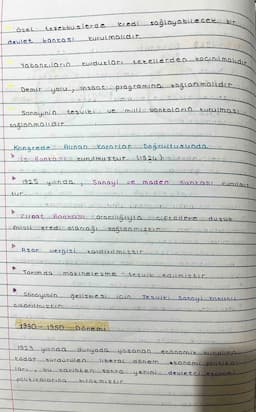 Özel teşebbüslerde kredi sağlayabilecek bir
devlet bankası kurulmalıdır.
Yabancıların kurdukları tekellerden kaçınılmalıdır
Demir yolu, inşaat programına bağlanmalıdır
Sanayinin teşviki ve milli bankaların kurulması
sağlanmalıdır.
Kongrede Alınan Kararlar Doğrultusunda
İş Bankası kurulmuştur (1924)
1925 yılında, Sanayi ve maden bankası
tur
Ziraat Bankası aracılığıyla çiftçilere düşük
faizli kredi olanağı sağlanmıştır
Aşar vergisi kaldırılmıştır
Tarımda makineleşme teşvik edilmiştir
Sanayinin gelişmesi için Teşviki Sanayi
çıkarılmıştır
1930-1950 Dönemi
yılında dünyada yaşanan ekonomik
kadar sürdürülen liberal dönem ekonomi
bu tarihten sonra yerini devletçi
politikalarına bırakmıştır